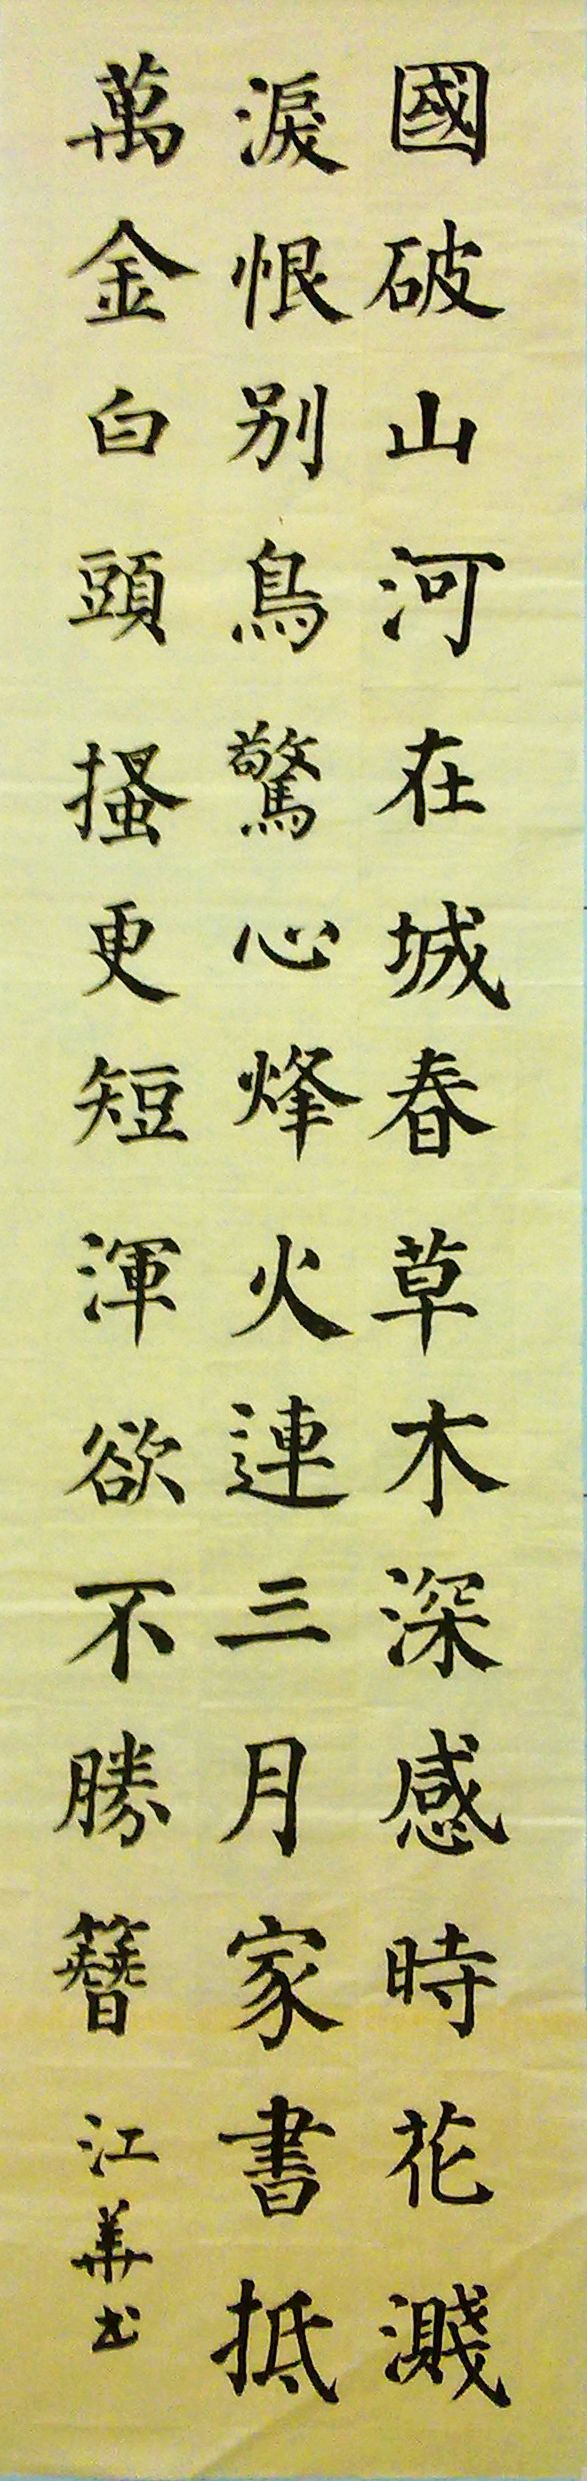 國破山河在城春草木深感時花濺
淚恨别鳥驚心烽火連三月家書抵
萬金白頭搔更短渾欲不勝簪
江華书